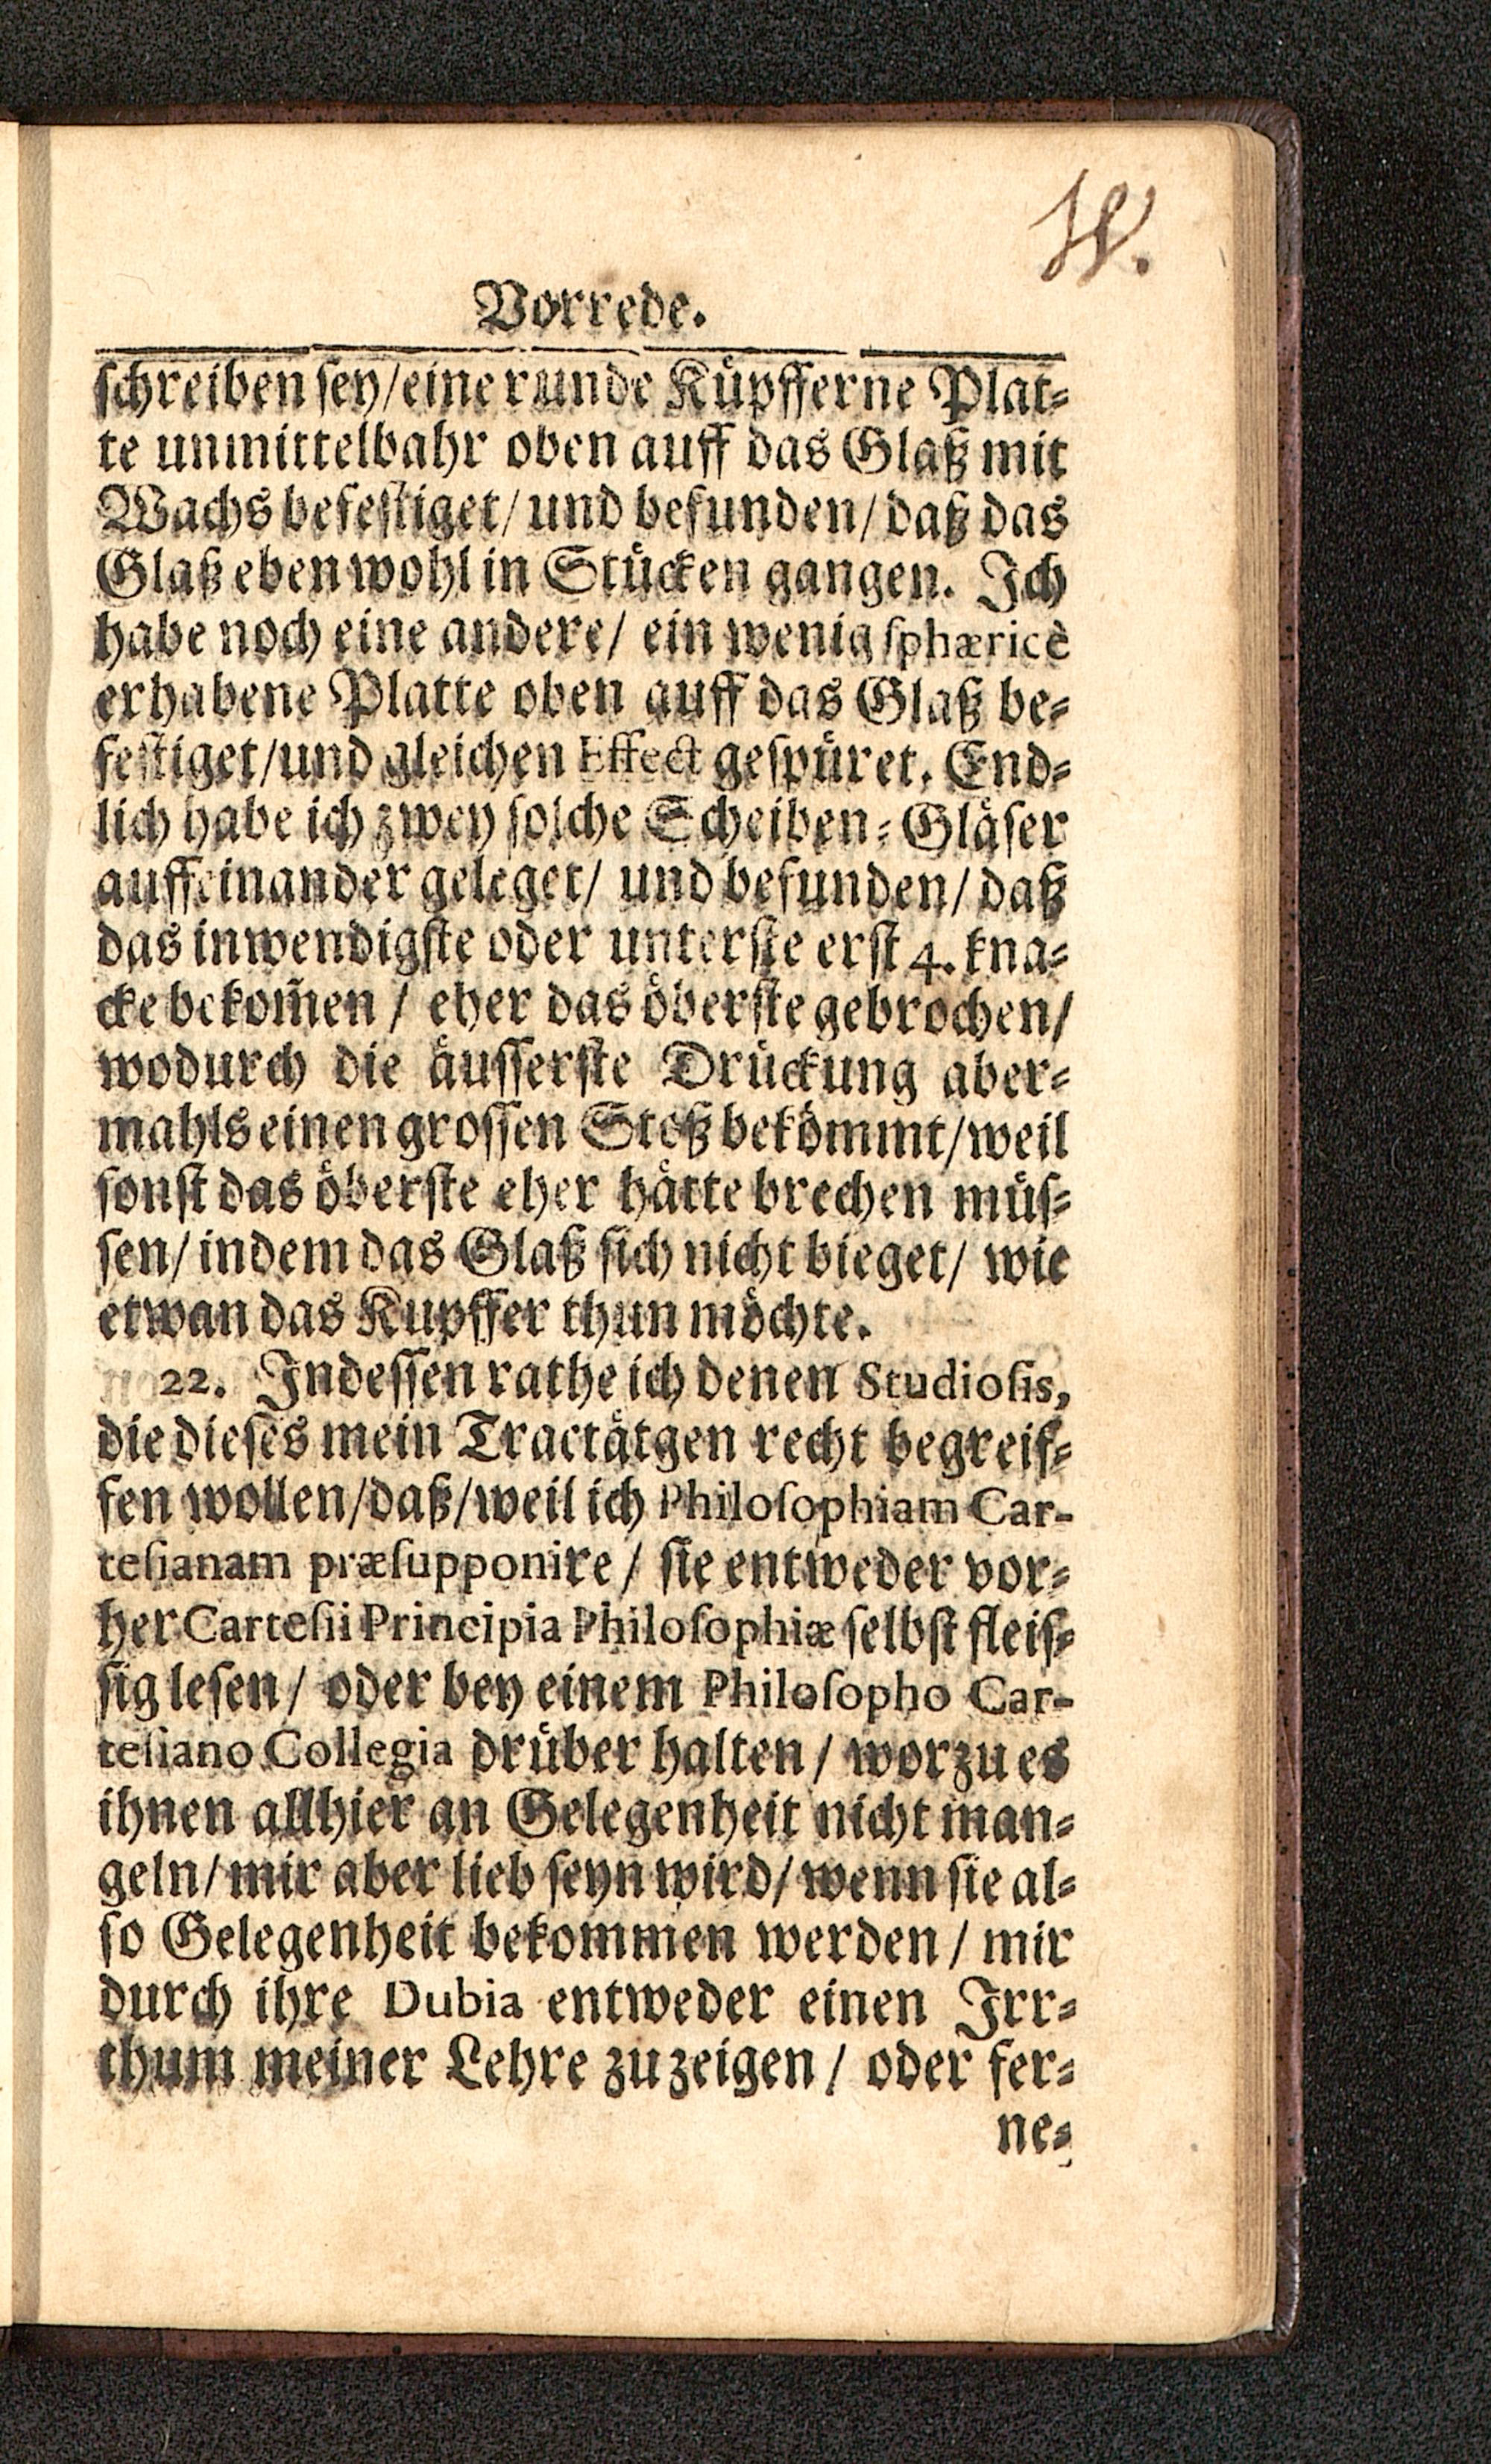 W.
Vorrede.
ſchreiben ſey/eine runde Küpfferne Plat-
te unmittelbahr oben auff das Glaß mit
Wachs befeſtiget/ und befunden/ daß das
Glaß eben wohl in Stücken gangen. Ich
habe noch eine andere/ ein wenig ſphæricè
erhabene Platte oben auff das Glaß be-
feſtiget/und gleichen Effect geſpüret. End-
lich habe ich zwey ſolche Scheiben-Gläſer
auffeinander geleget/ und befunden/ daß
das inwendigſte oder unterſte erſt 4. kna-
cke bekom̃en / eher das öberſte gebrochen/
wodurch die äuſſerſte Drückung aber-
mahls einen groſſen Stoß bekömmt/weil
ſonſt das öberſte eher hätte brechen müſ-
ſen/ indem das Glaß ſich nicht bieget/ wie
etwan das Kupffer thun möchte.
22. Indeſſen rathe ich denen Studioſis,
die dieſes mein Tractätgen recht begreif-
fen wollen/daß/weil ich Philoſophiam Car-
teſianam præſupponire / ſie entweder vor-
her Carteſii Principia Philoſophiæ ſelbſt fleiſ-
ſig leſen/ oder bey einem Philoſopho Car-
teſiano Collegia drüber halten / worzu es
ihnen allhier an Gelegenheit nicht man-
geln/ mir aber lieb ſeyn wird/ wenn ſie al-
ſo Gelegenheit bekommen werden / mir
durch ihre Dubia entweder einen Irr-
thum meiner Lehre zuzeigen / oder fer-
ne-